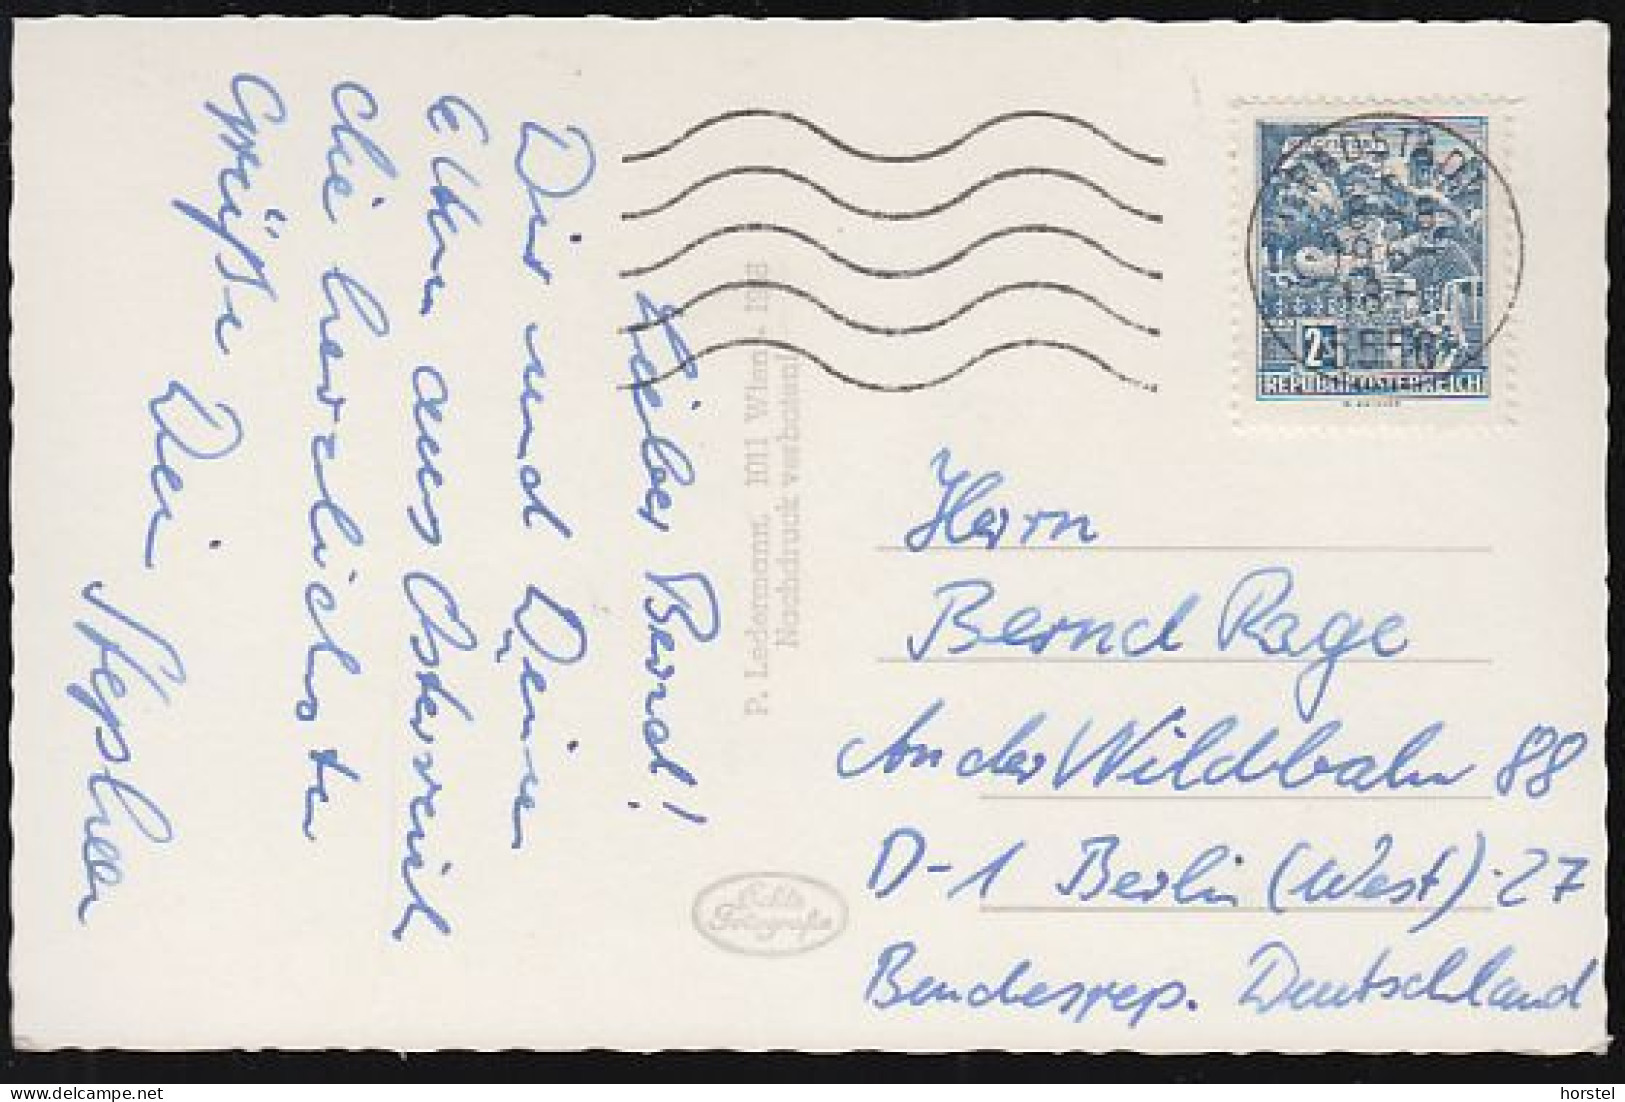 Lieber Bernd!
Dir und Deinen
Eltern aus Österreich
die herzlichsten
Grüße Dein
P. Ledermann, 1011 Wien
Nachdruck verboten!
Echte
Fotografie
2
REPUBLIK ÖSTERREICH
Herrn
Bernd Rage
An der Wildbahn 88
D-1 Berlin (West) 27
Bundesrep. Deutschland
horstel